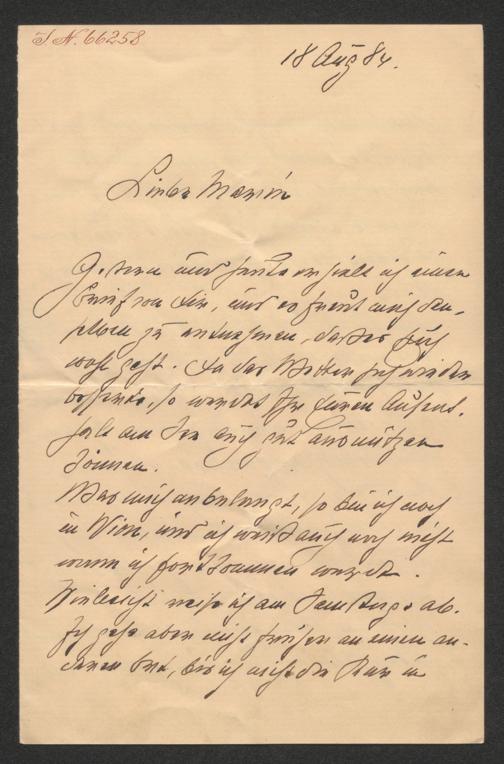 I N. 66258
18 Aug 84.
Lieber Marie
Gestern und heute erhielt ich einen
Brief von Dir, und es freut mich den-
selben zu entnehmen, daß es Euch
wohl geht. Da das Wetter sich wieder
besserte, so werdet Ihr Euren Aufent-
halt am See auch gut ausnützen
können.
Was mich anbelangt, so bin ich noch
in Wien, und ich weiß auch noch nicht
wann ich fortkommen werde.
Vielleicht reise ich am Samstage ab.
Ich gehe aber nicht früher an einen an-
deren Ort, bis ich nicht die Kur in